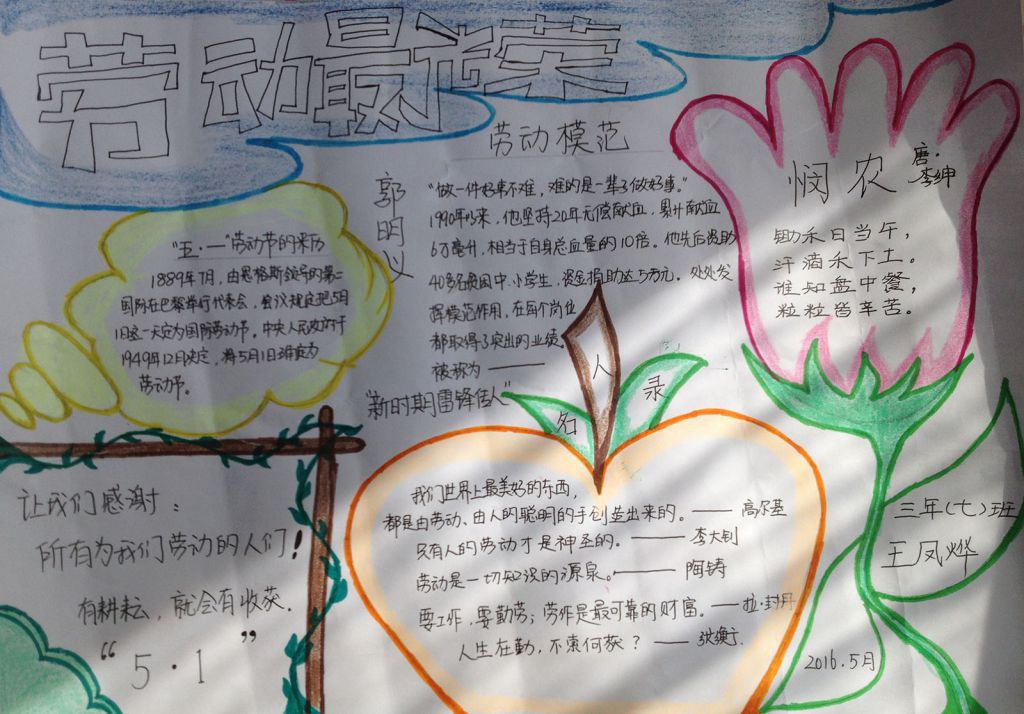 劳动最光荣
劳动模范
郭明义
"做一件好事不难，难的是一辈子做好事。"
1990年以来，他坚持20年无偿献血，累计献血
6万毫升，相当于自身总血量的10倍。他先后资助
40多名贫困中、小学生，资金捐助达5万元。处处发
挥模范作用，在每个岗位
都取得了突出的业绩。
被称为———
"新时期雷锋传人"
"五·一"劳动节的来历
1889年7月，由恩格斯领导的第二
国际在巴黎举行代表会，会议规定把5月
1日这一天定为国际劳动节。中央人民政府于
1949年12月决定，将5月1日确定为
劳动节。
悯农
唐·
李绅
锄禾日当午，
汗滴禾下土。
谁知盘中餐，
粒粒皆辛苦。
让我们感谢：
所有为我们劳动的人们！
有耕耘，就会有收获.
"5·1"
名人录
我们世界上最美好的东西，
都是由劳动、由人的聪明的手创造出来的。——高尔基
只有人的劳动才是神圣的。——李大钊
劳动是一切知识的源泉。——陶铸
要工作，要勤劳；劳作是最可靠的财富。—拉·封丹
人生在勤，不索何获？——张衡
三年(七)班
王凤烨
2016.5月